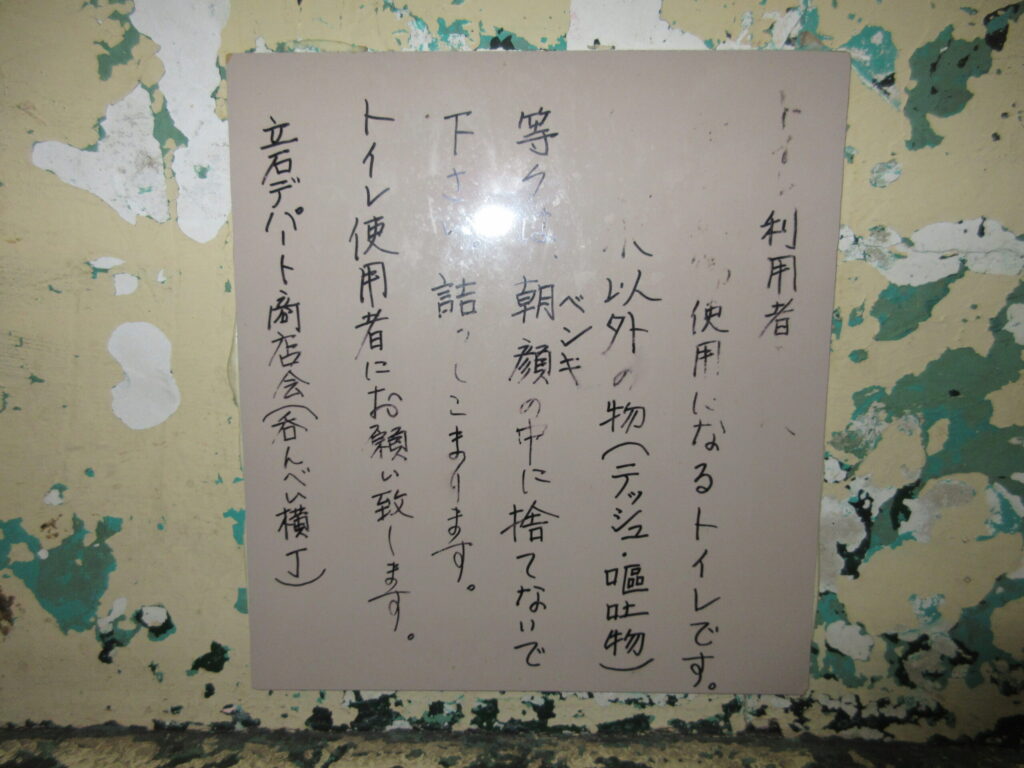 トイレ利用者
使用になるトイレです。
以外の物(テッシュ・嘔吐物)
等々は、朝顔の中に捨てないで
ベンキ
下さい。詰 しこまります。
トイレ使用者にお願い致します。
立石デパート商店会(呑んべい横丁)